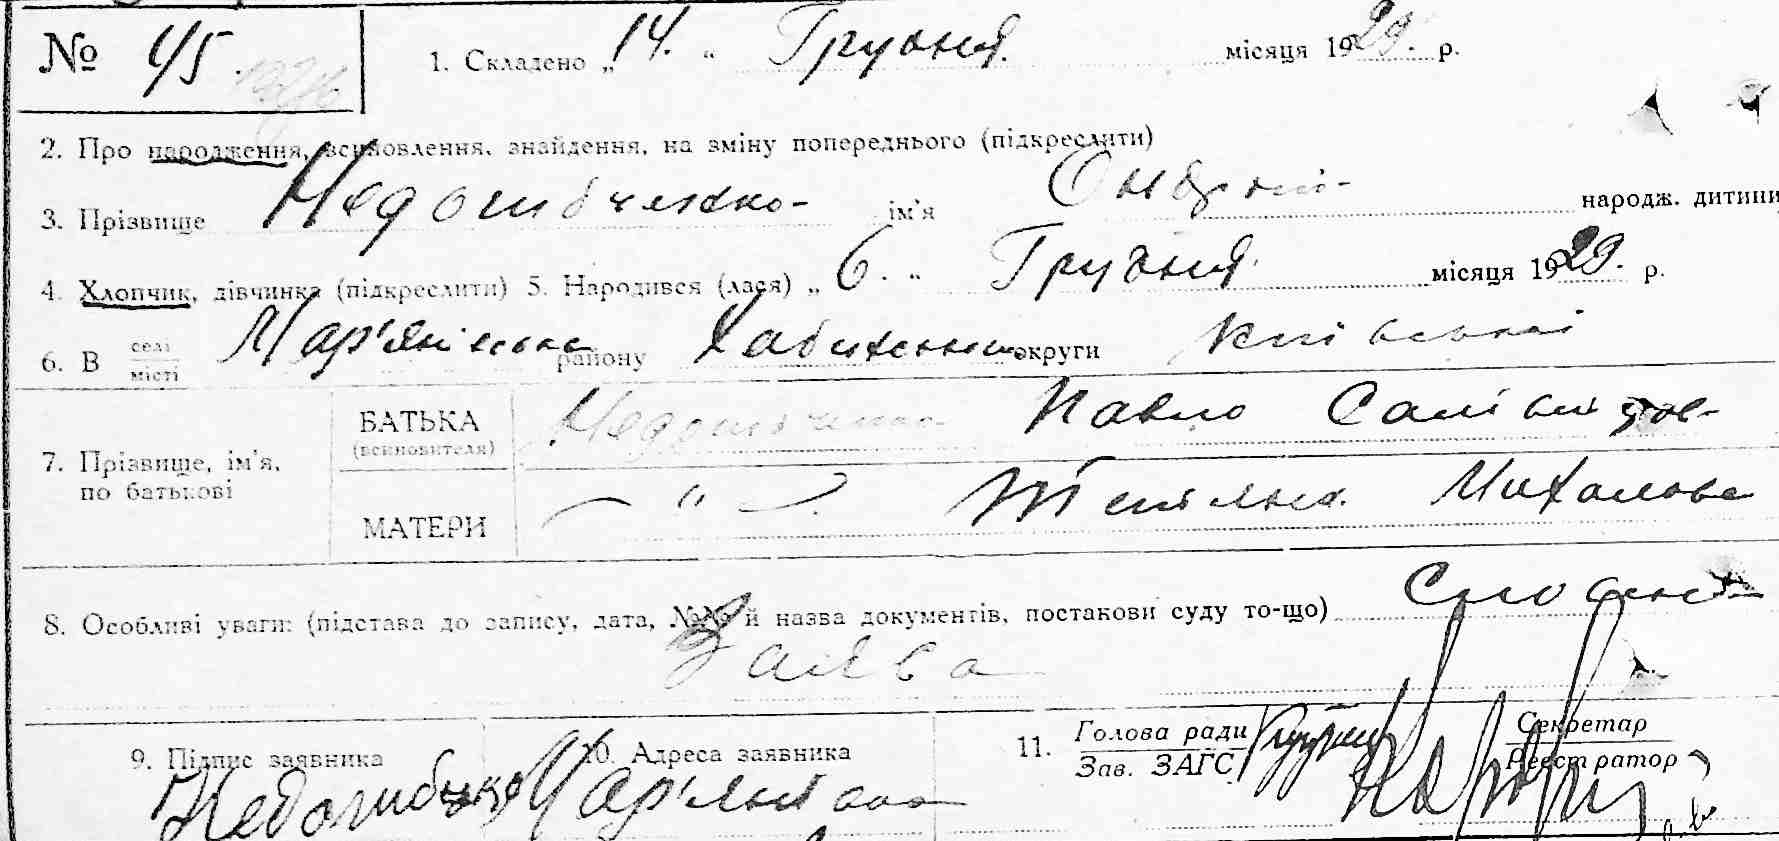 № 45. 1. Складено „14.“ Грудня місяця 1929. р.
2. Про народження, всиновлення, знайдення, на зміну попереднього (підкреслити)
3. Прізвище ім'я народж. дитини
4. Хлопчик, дівчинка (підкреслити) 5. Народився (лася) „6.“ Грудня місяця 1929. р.
6. В селі місті Мар'янівка району округи Київської
7. Прізвище, ім'я, по батькові
БАТЬКА (всиновителя) Павло
МАТЕРИ — " — Тетяна Михалова
8. Особливі уваги: (підстава до запису, дата, №№ й назва документів, постакови суду то-що) Словесна
Заява
9. Підпис заявника 10. Адреса заявника 11. Голова ради Секретар
Зав. ЗАГС Реєстратор
Мар'янівка